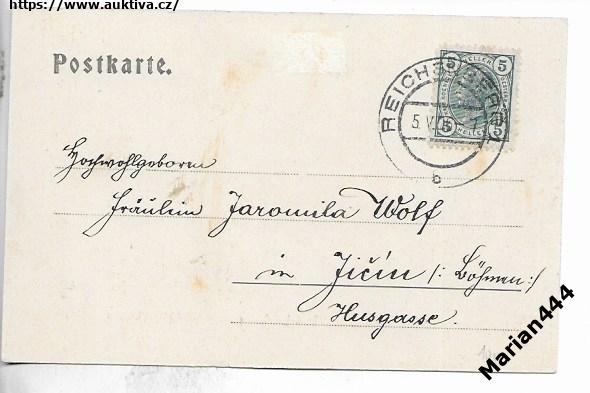 https://www.auktiva.cz/
Postkarte.
5 HELLER 5
REICHENBERG
5. V.
5 HELLER 5
b
Hochwohlgeboren
Fräulein Jaromila Wolf
in Jičín /: Böhmen :/
Husgasse.
Marian444